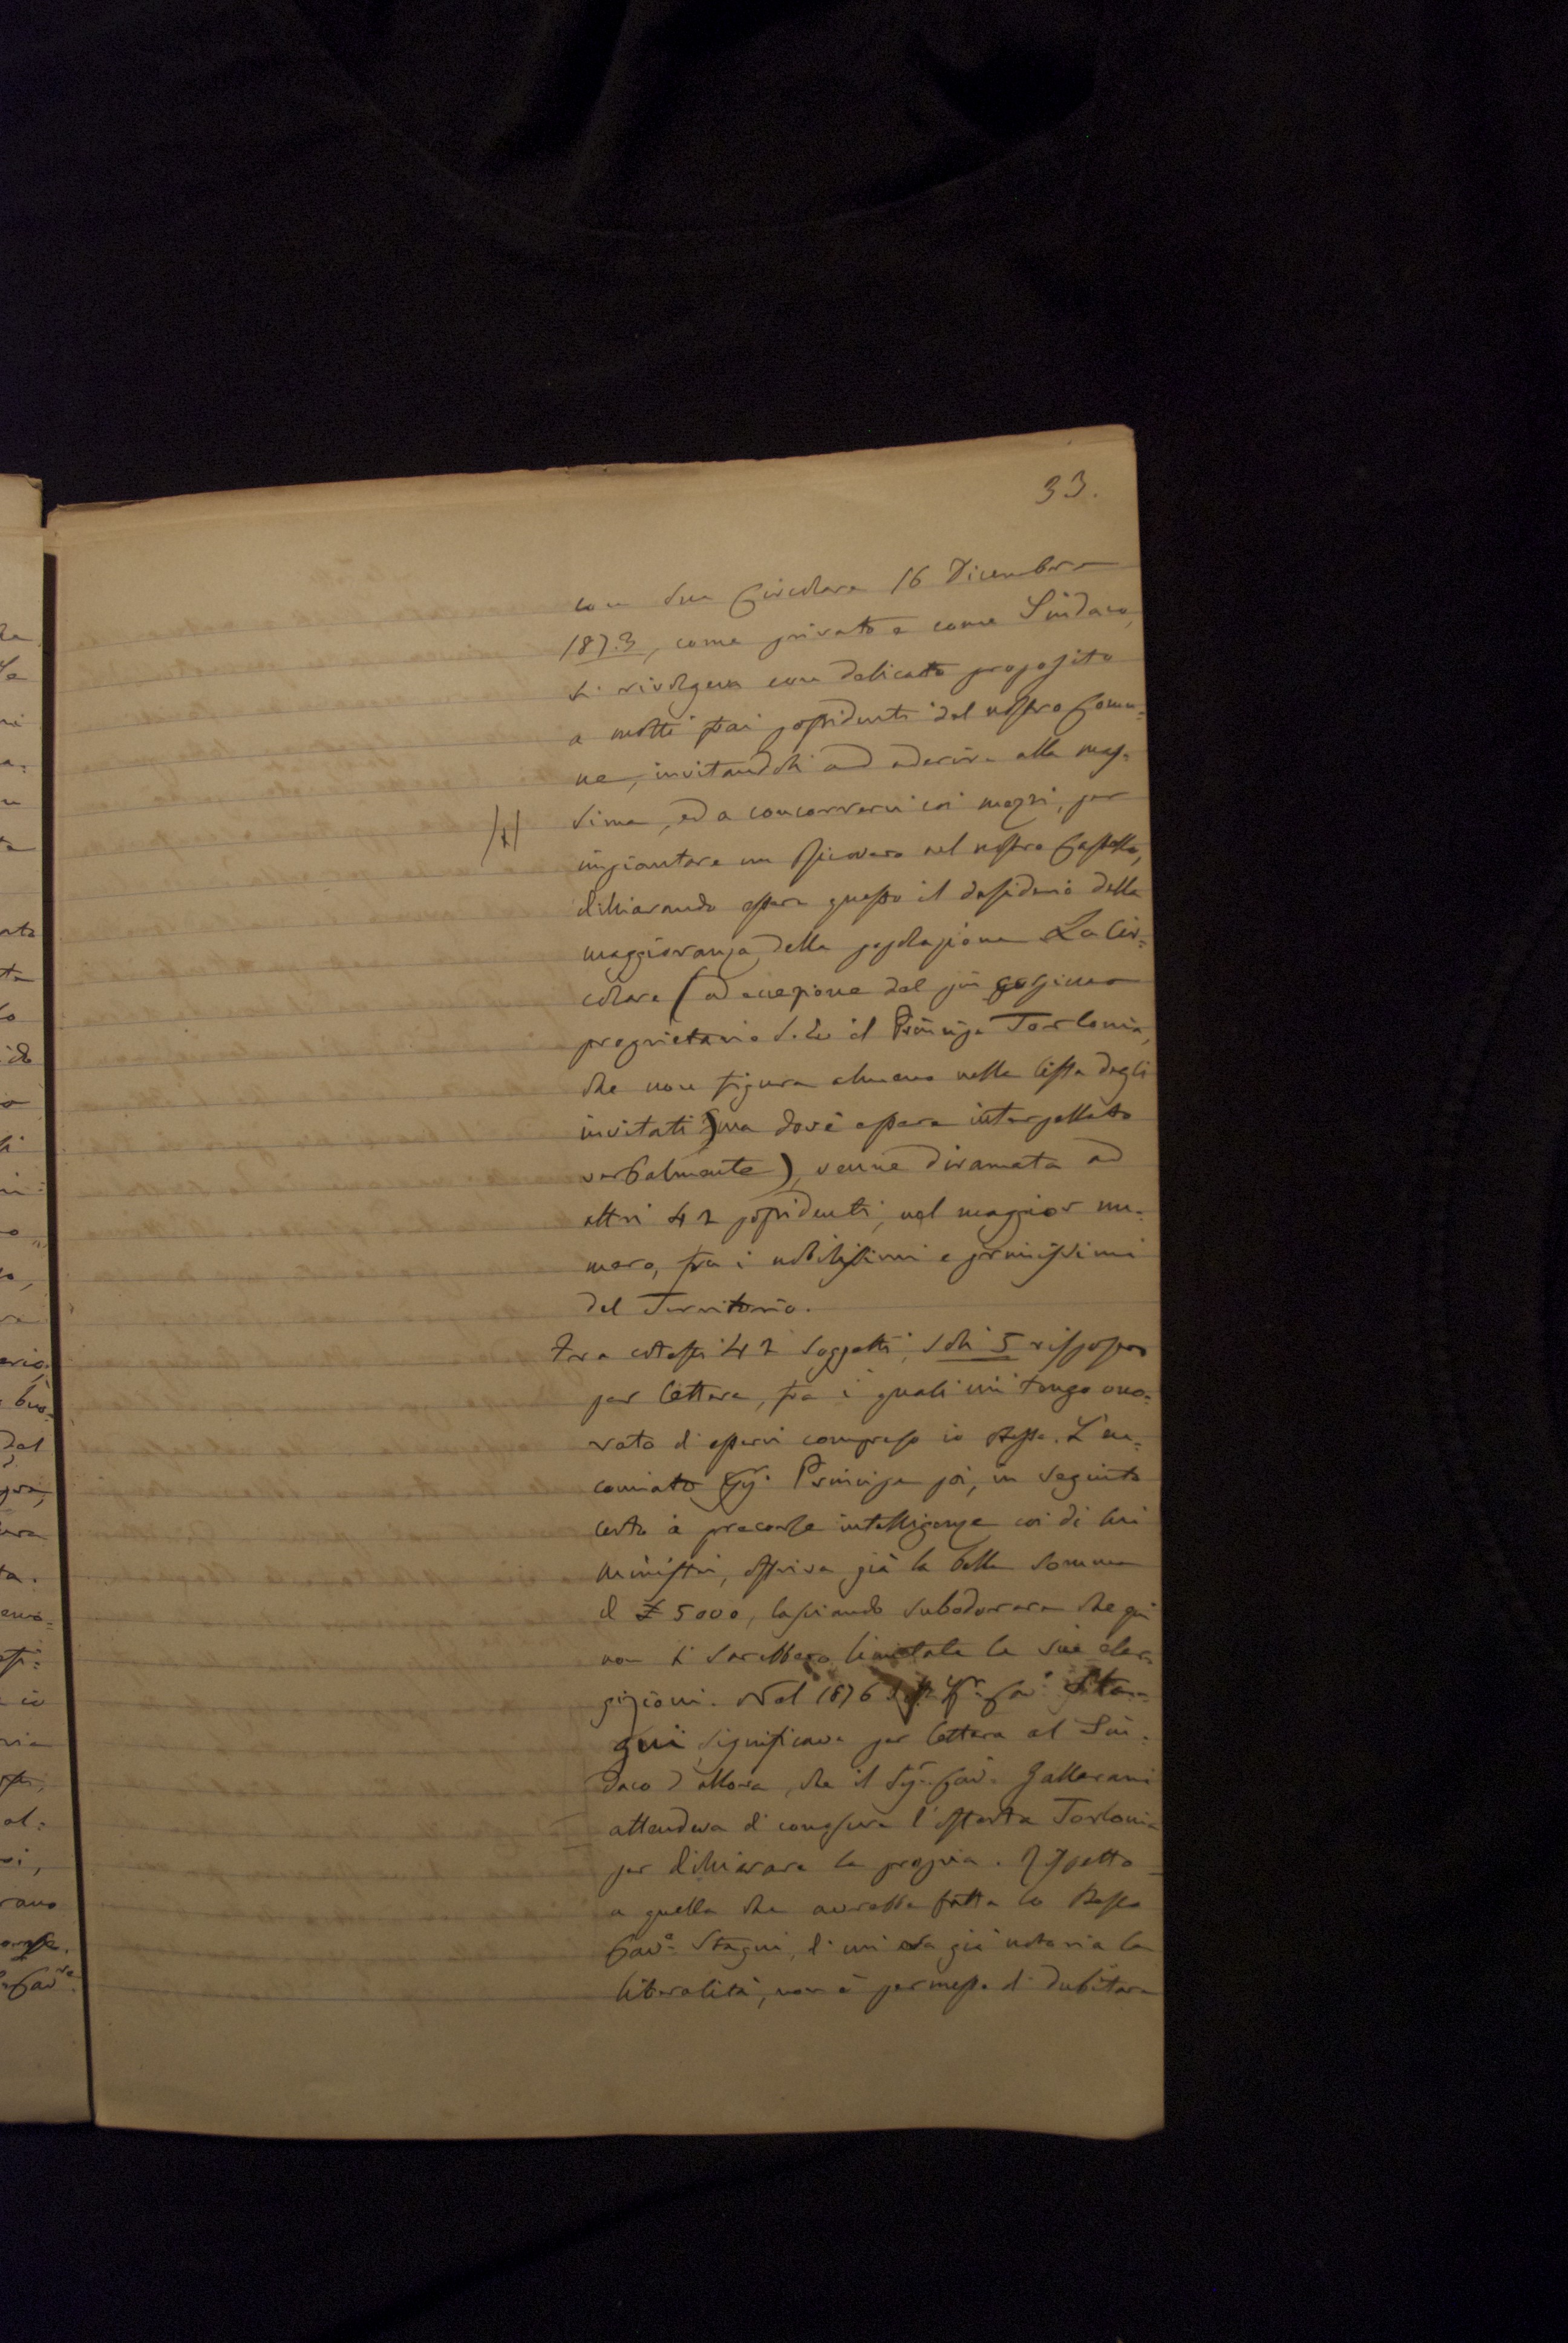 33.
con sua Circolare 16 Dicembre
1873, come privato e come Sindaco,
si rivolgeva con delicato proposito
a molti fra i possidenti del nostro Comu=
ne, invitandoli ad aderire alla mas=
sima, ed a concorrervi coi mezzi, per
impiantare un Ricovero nel nostro Castello,
dichiarando essere questo il desiderio della
maggioranza della popolazione La Cir=
colare (ad eccezione del più
proprietario S. E. il Principe Torlonia,
che non figura almeno nella lista degli
invitati, ma dové essere interpellato
verbalmente), venne diramata ad
altri 42 possidenti, nel maggior nu=
mero, fra i nobilissimi e primissimi
del Territorio.
Fra cotesti 42 soggetti, soli 5 risposero
per lettera, fra i quali mi tengo ono=
rato di esservi compreso io stesso. L'en=
comiato Sigr. Principe poi, in seguito
certo a precorse intelligenze coi di lui
ministri, offriva già la bella somma
di £ 5000, lasciando subodorare che qui
non si sarebbero limitate le sue elar=
gizioni. Nel 1876 Sigr. Cave. Sta=
gni significava per lettera al Sin=
daco d'allora, che il Sigr. Cav. Gallerani
attendeva di conoscere l'offerta Torlonia
per dichiarare la propria. Rispetto
a quella che avrebbe fatta lo stesso
Cave. Stagni, di cui era già notoria la
liberalità, non è permesso di dubitare